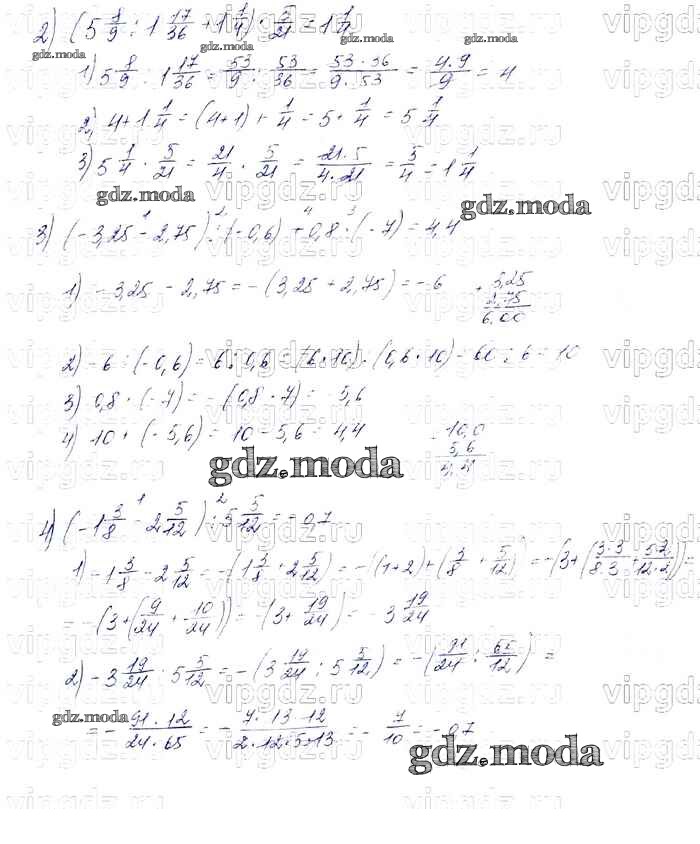 2) (5 8/9 : 1 17/36 + 1 1/4) · 5/21 = 1 1/4
1) 5 8/9 : 1 17/36 = 53/9 : 53/36 = 53 · 36/9 · 53 = 4 · 9/9 = 4
2) 4 + 1 1/4 = (4+1) + 1/4 = 5 + 1/4 = 5 1/4
3) 5 1/4 · 5/21 = 21/4 · 5/21 = 21 · 5/4 · 21 = 5/4 = 1 1/4
gdz.moda
3) (-3,25 - 2,75) : (-0,6) + 0,8 · (-7) = 4,4
1) -3,25 - 2,75 = -(3,25 + 2,75) = -6
+ 3,25
2,75
6,00
2) -6 : (-0,6) = 6 : 0,6 = (6 · 10) : (0,6 · 10) = 60 : 6 = 10
3) 0,8 · (-7) = -(0,8 · 7) = -5,6
4) 10 + (-5,6) = 10 - 5,6 = 4,4
- 10,0
5,6
4,4
gdz.moda
4) (-1 3/8 - 2 5/12) : 5 5/12 = -0,7
1) -1 3/8 - 2 5/12 = -(1 3/8 + 2 5/12) = -(1+2) + (3/8 + 5/12) = -(3 + (3·3/8·3 + 5·2/12·2)) =
= -(3 + (9/24 + 10/24)) = -(3 + 19/24) = -3 19/24
2) -3 19/24 : 5 5/12 = -(3 19/24 : 5 5/12) = -(91/24 : 65/12) =
= - 91 · 12/24 · 65 = - 7 · 13 · 12/2 · 12 · 5 · 13 = - 7/10 = -0,7
gdz.moda
vipgdz.ru